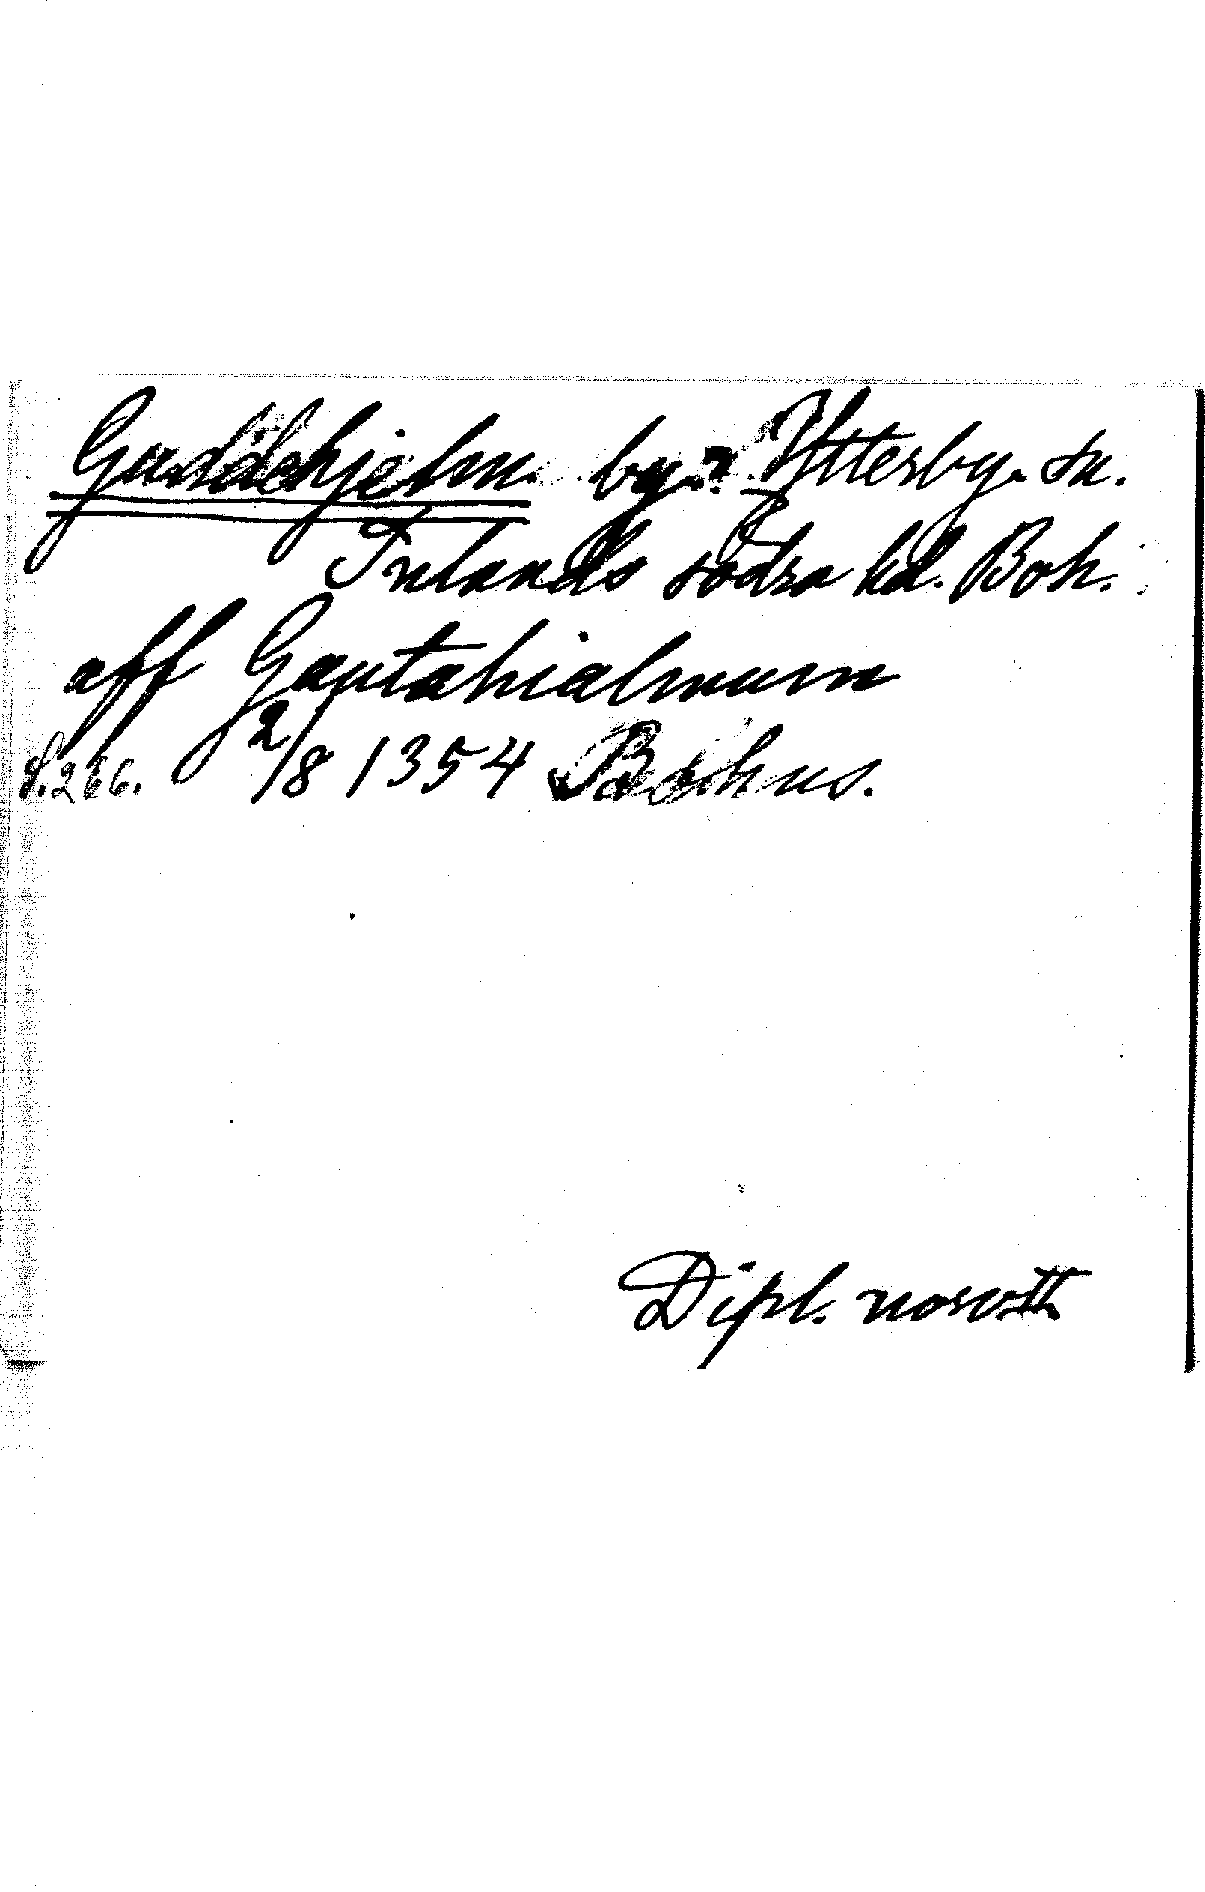 Guddehjelm. by. i Ytterby. sn.
Inlands södra hd. Boh.
aff Gautahialmum
S. 266. 2/8 1354 Bohus.
Dipl. norv. II